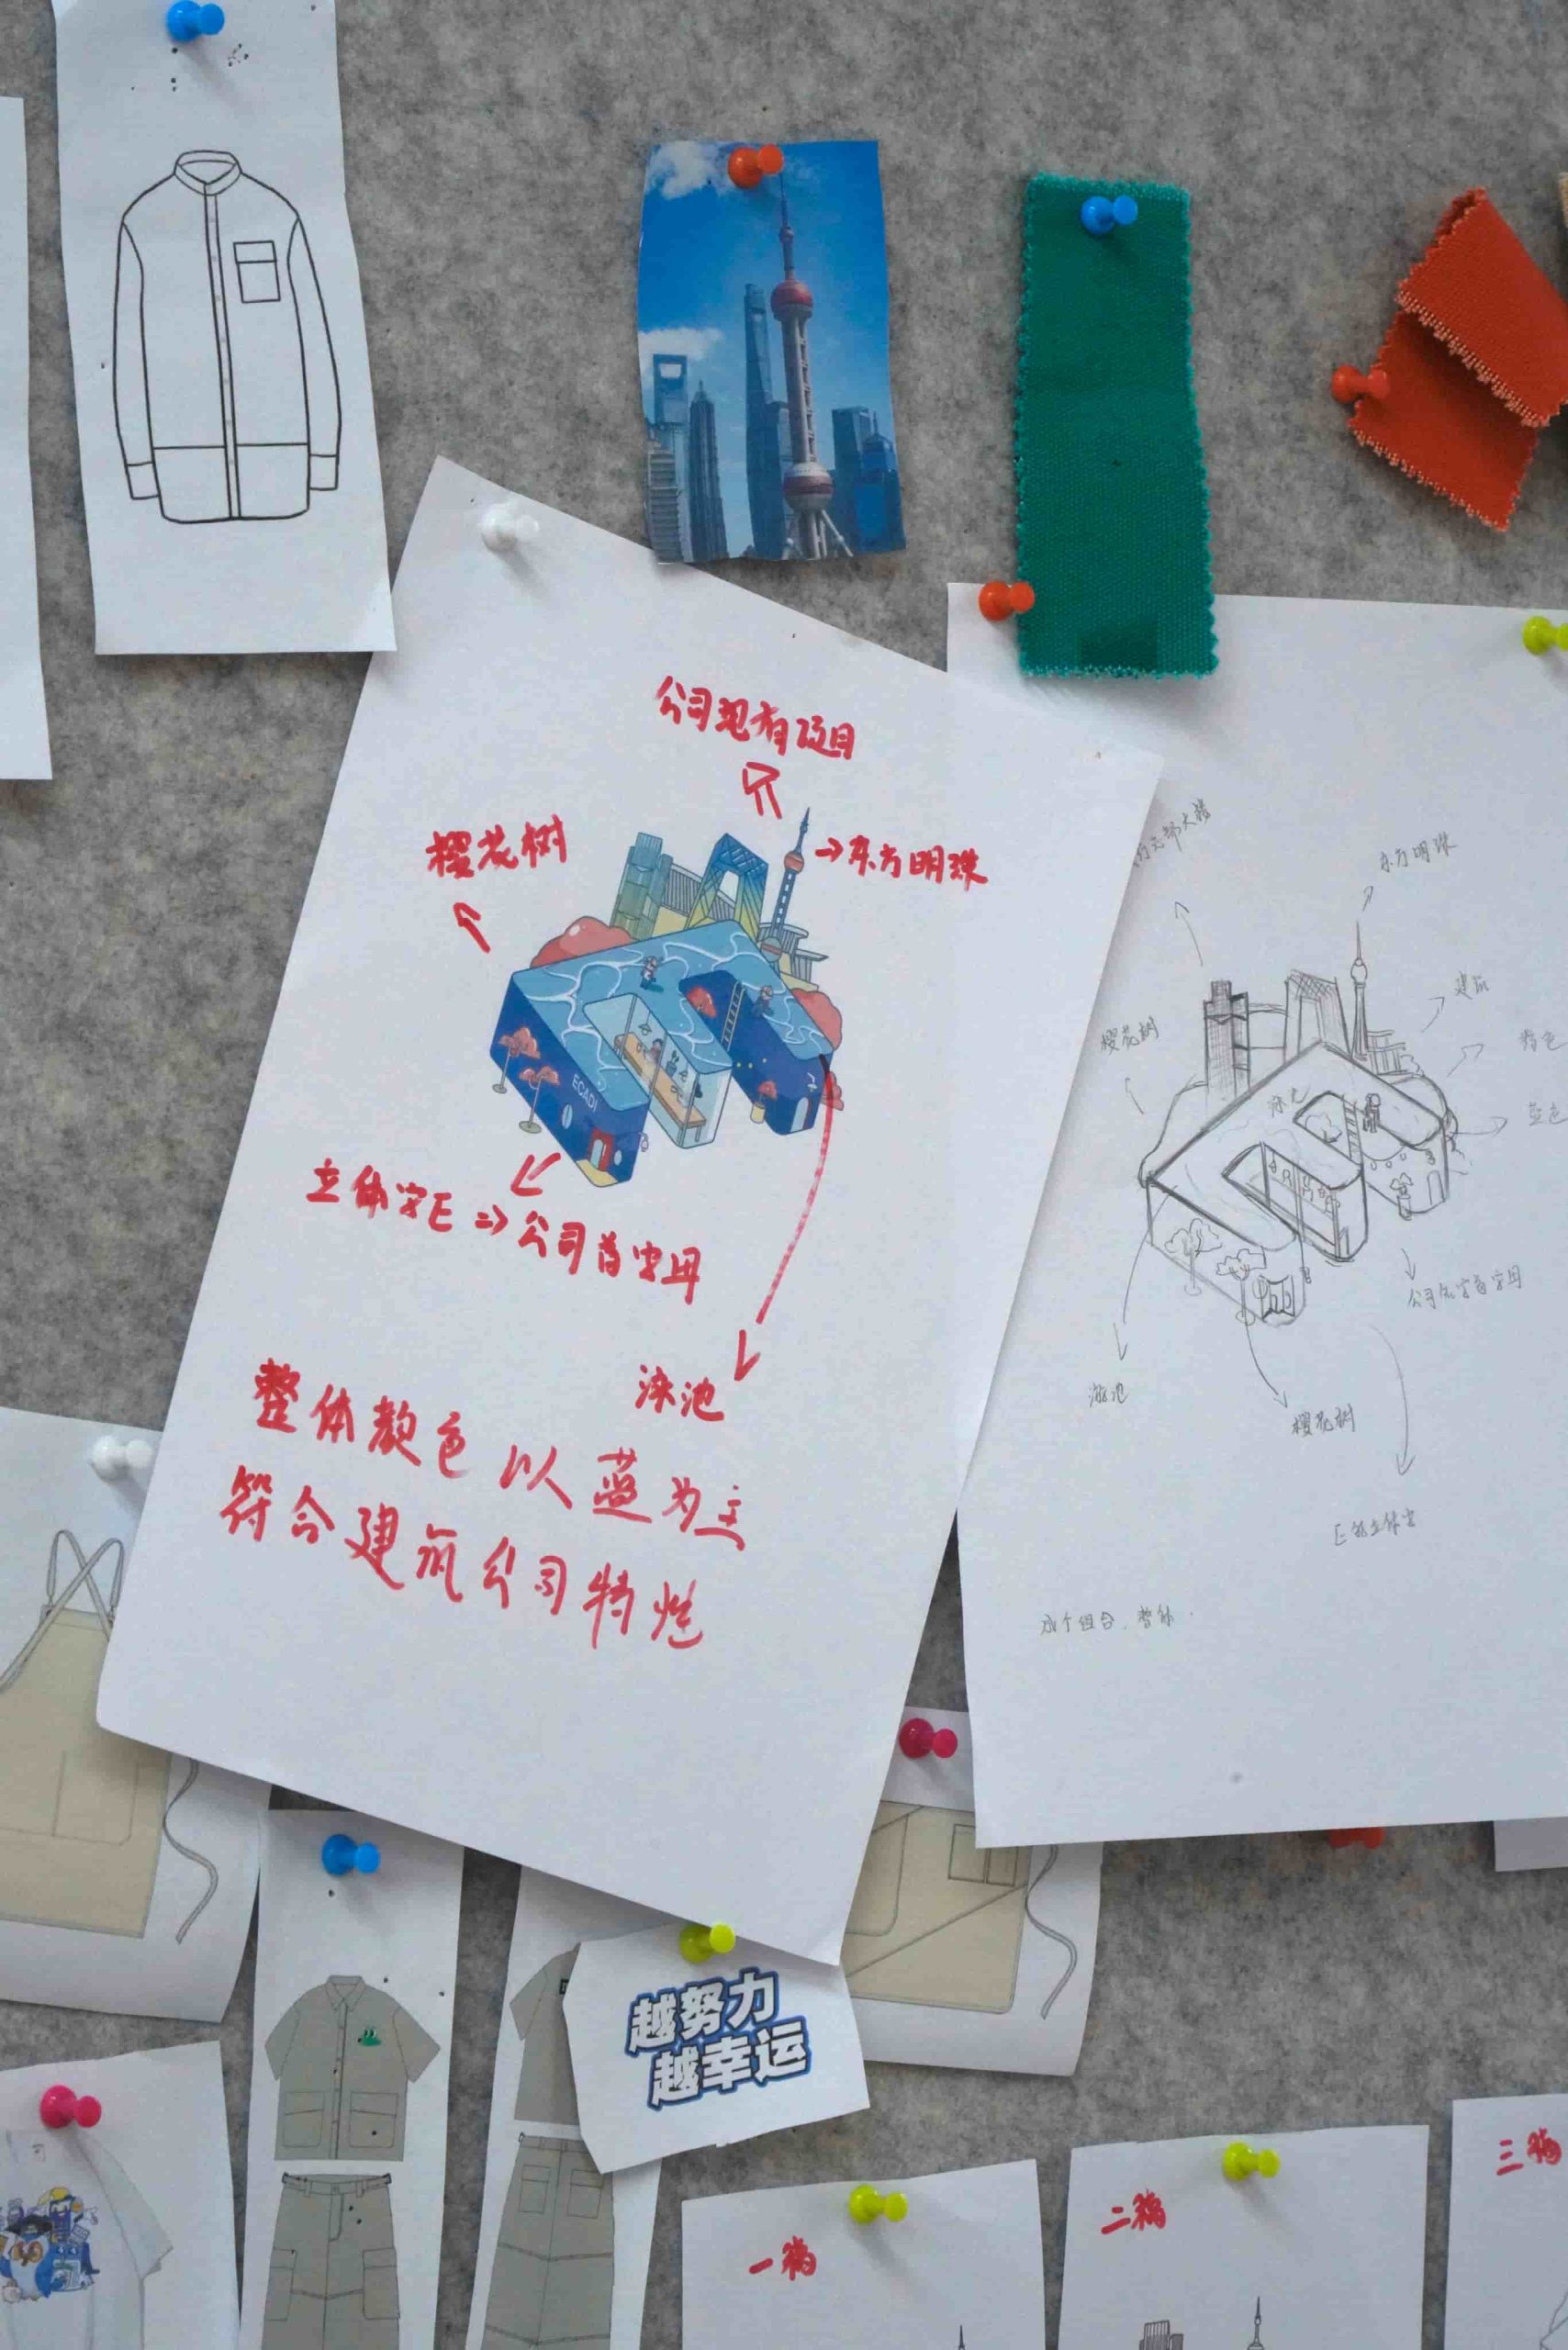 公司现有项目
樱花树
东方明珠
ECADI
立体字E⇒公司首字母
泳池
整体颜色以蓝为主
符合建筑公司特性
东方明珠
建筑
樱花树
蓝色
泳池
公司名字首字母
游池
樱花树
E的立体字
越努力
越幸运
一稿
二稿
三稿